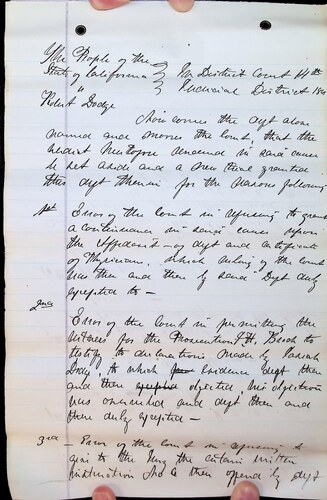 The People of the
State of California } In District Court 14th
" } Judicial District
Robert Dodge
Now comes the deft above
named and moves the Court, that the
verdict heretofore rendered in said cause
be set aside and a new trial granted
this deft therein for the reasons following
1st Error of the Court in refusing to grant
a continuance in said cause upon
the affidavit of deft and certificate
of Physician, which ruling of the court
was then and there by said Deft duly
excepted to —
2nd
Error of the Court in permitting the
witness for the Prosecution J.H. to
testify to declarations made by
Dodge, to which evidence deft then
and there excepted objected, his objection
was overruled and deft then and
there duly excepted —
3rd — Error of the Court in refusing to
give to the Jury the certain written
instruction No 2 then offered by deft